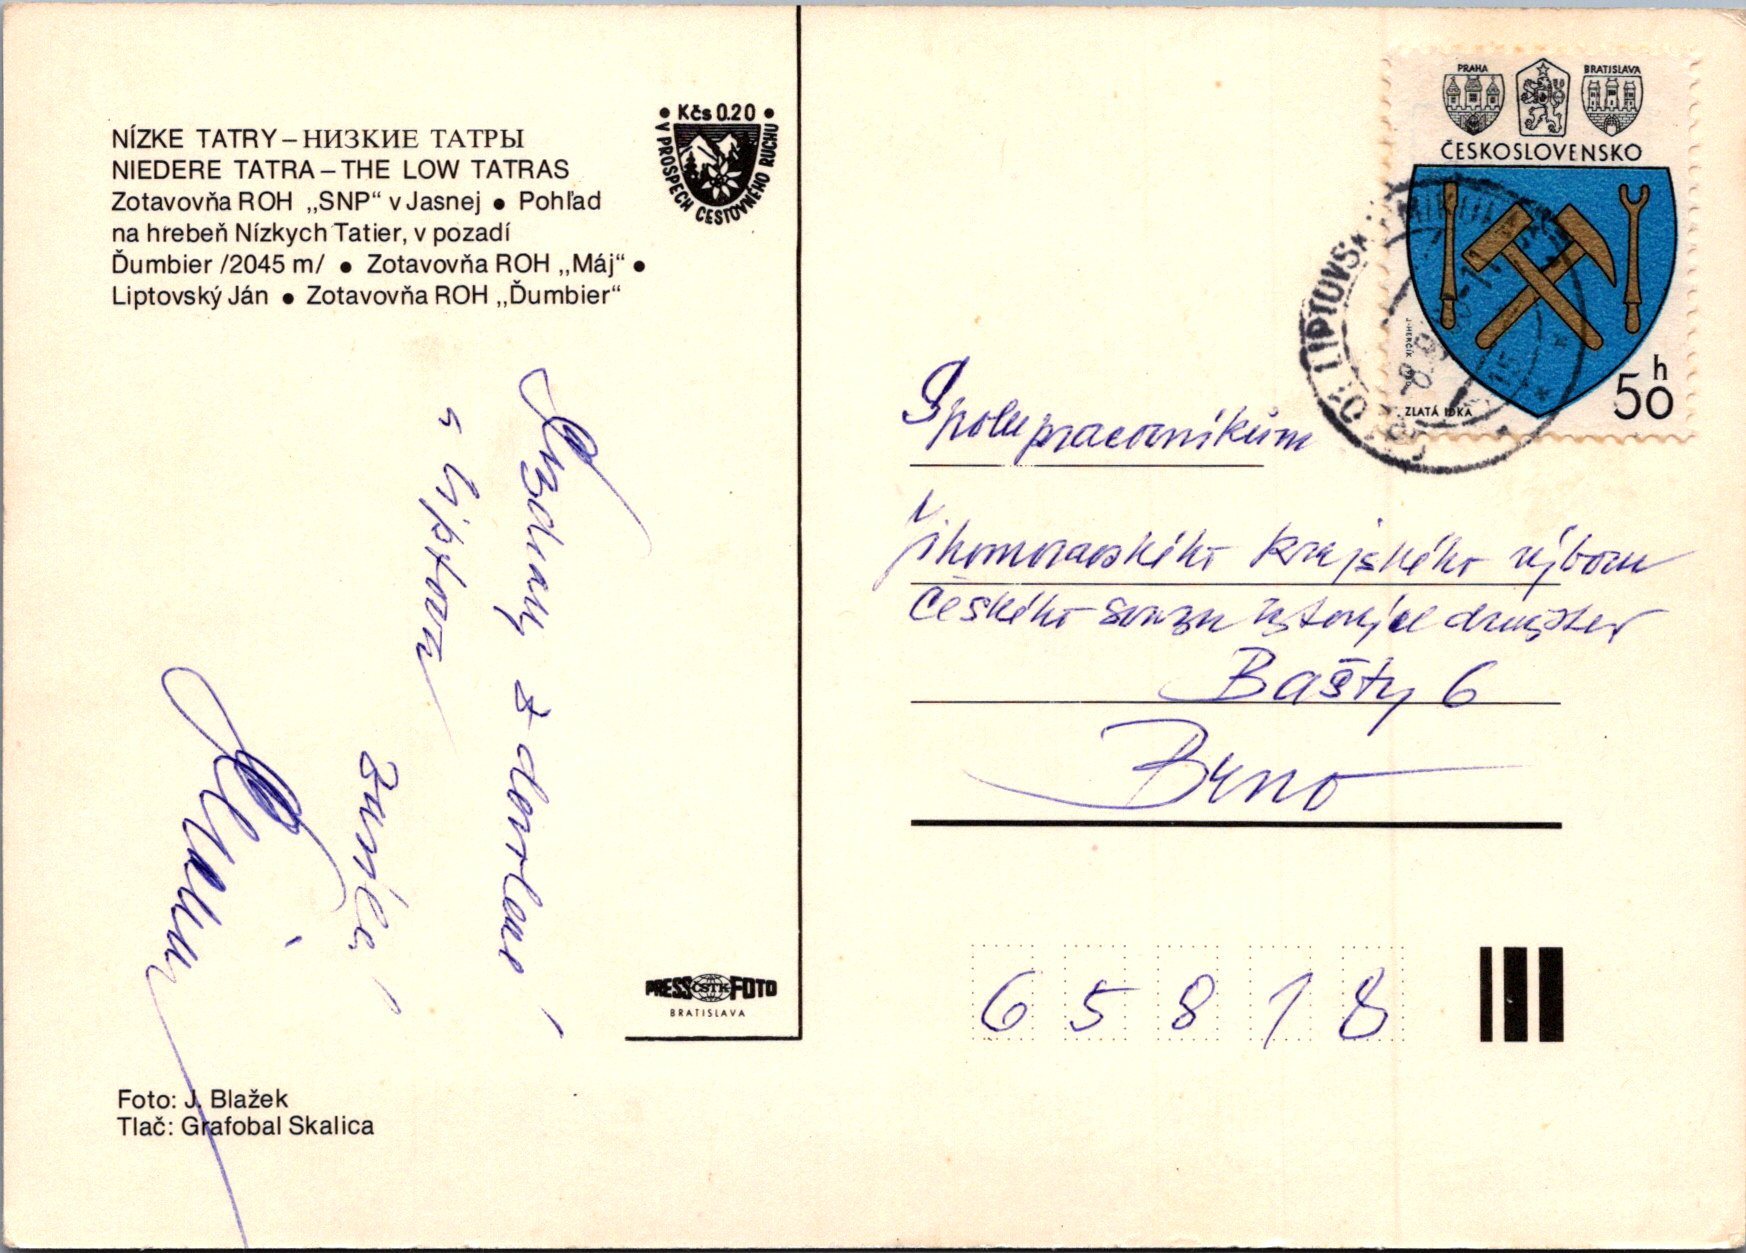 NÍZKE TATRY – НИЗКИЕ ТАТРЫ
NIEDERE TATRA – THE LOW TATRAS
Zotavovňa ROH „SNP“ v Jasnej ● Pohľad
na hrebeň Nízkych Tatier, v pozadí
Ďumbier /2045 m/ ● Zotavovňa ROH „Máj“ ●
Liptovský Ján ● Zotavovňa ROH „Ďumbier“
● Kčs 0.20 ●
V PROSPECH CESTOVNÉHO RUCHU
Pozdravy z dovolené
v Liptově
PRESS ČSTK FOTO
BRATISLAVA
Foto: J. Blažek
Tlač: Grafobal Skalica
PRAHA
BRATISLAVA
ČESKOSLOVENSKO
J. HERČÍK
ZLATÁ IDKA
50 h
LIPTOVSK
Spolupracovníkům
Jihomoravského krajského výboru
Českého svazu bytových družstev
Bašty 6
Brno
65818